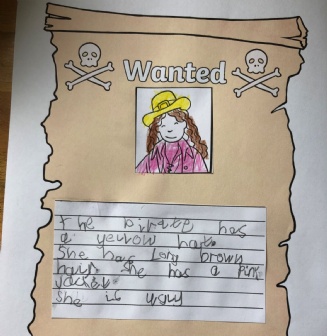 Wanted
the pirate has
a yellow hat.
She has long brown
hair. She has a pink
jacket.
She is ugly